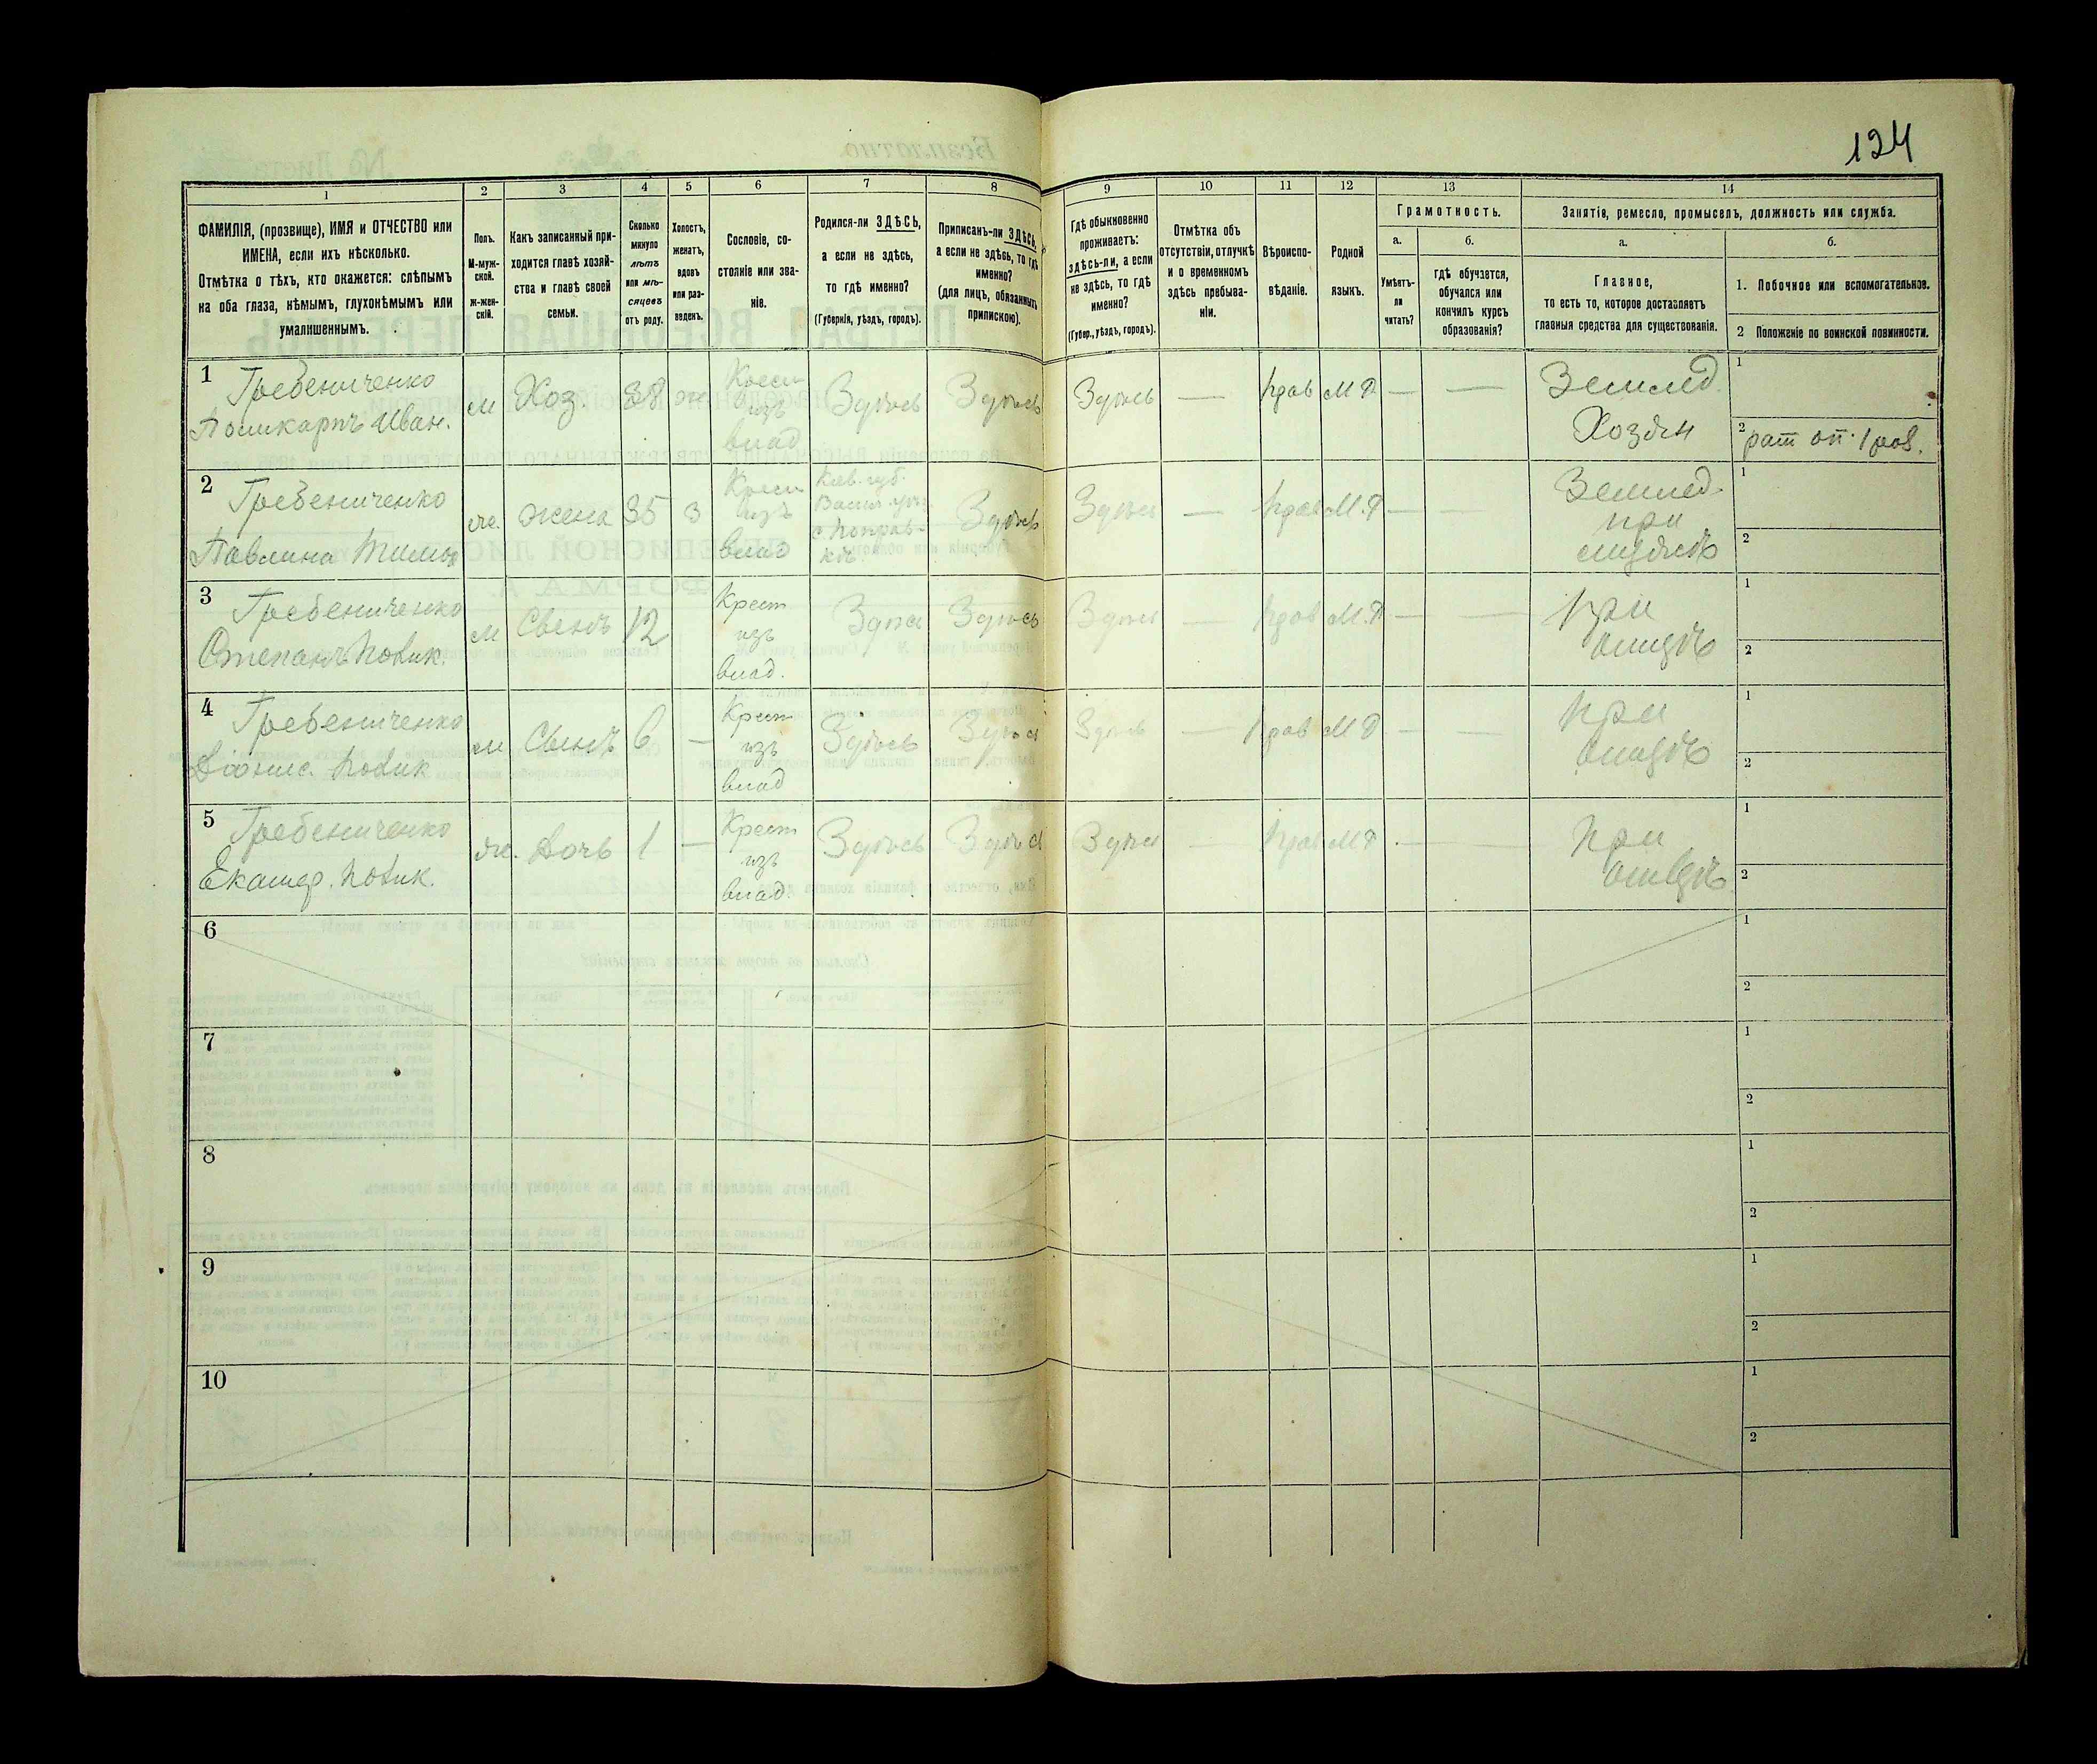 124
1
2
3
4
5
6
7
8
9
10
11
12
13
14
ФАМИЛІЯ, (прозвище), ИМЯ и ОТЧЕСТВО или
ИМЕНА, если ихъ нѣсколько.
Отмѣтка о тѣхъ, кто окажется: слѣпымъ
на оба глаза, нѣмымъ, глухонѣмымъ или
умалишеннымъ.
Полъ.
М-муж-
ской.
Ж-жен-
скій.
Какъ записанный при-
ходится главѣ хозяй-
ства и главѣ своей
семьи.
Сколько
минуло
лѣтъ
или мѣ-
сяцевъ
отъ роду.
Холостъ,
женатъ,
вдовъ
или раз-
веденъ.
Сословіе, со-
стояніе или зва-
ніе.
Родился-ли ЗДѢСЬ,
а если не здѣсь,
то гдѣ именно?
(Губернія, уѣздъ, городъ).
Приписанъ-ли ЗДѢСЬ,
а если не здѣсь, то гдѣ
именно?
(для лицъ, обязанныхъ
припискою).
Гдѣ обыкновенно
проживаетъ:
здѣсь-ли, а если
не здѣсь, то гдѣ
именно?
(Губер., уѣздъ, городъ).
Отмѣтка объ
отсутствіи, отлучкѣ
и о временномъ
здѣсь пребыва-
ніи.
Вѣроиспо-
вѣданіе.
Родной
языкъ.
Грамотность.
а.
Умѣетъ-
ли
читать?
б.
гдѣ обучается,
обучался или
кончилъ курсъ
образованія?
Занятія, ремесло, промыселъ, должность или служба.
а.
Главное,
то есть то, которое доставляетъ
главныя средства для существованія.
б.
1. Побочное или вспомогательное.
2 Положеніе по воинской повинности.
1
Гребениченко
Поликарпъ Иван.
м
Хоз.
38
ж
Крест
изъ
влад
Здѣсь
Здѣсь
Здѣсь
—
прав
М Р
—
—
Землед.
Хозяин
1
2 рат оп. 1 раз.
2
Гребениченко
Павлина Тимоф
же.
жена
35
з
Крест
изъ
влад
Кіев. губ.
Васил. уѣз.
Здѣсь
Здѣсь
—
прав
М.Р
—
—
Землед.
при
1
2
3
Гребениченко
Степанъ Полик.
м
Сынъ
12
Крест
изъ
влад.
Здѣсь
Здѣсь
Здѣсь
—
прав
М.Р
—
—
при
отцѣ
1
2
4
Гребениченко
Полик
м
Сынъ
6
—
Крест
изъ
влад
Здѣсь
Здѣсь
Здѣсь
—
прав
М Р
—
—
при
отцѣ
1
2
5
Гребениченко
Екатер. Полик.
же.
Дочь
1
—
Крест
изъ
влад.
Здѣсь
Здѣсь
Здѣсь
—
прав
М Р
—
—
при
отцѣ
1
2
6
1
2
7
1
2
8
1
2
9
1
2
10
1
2